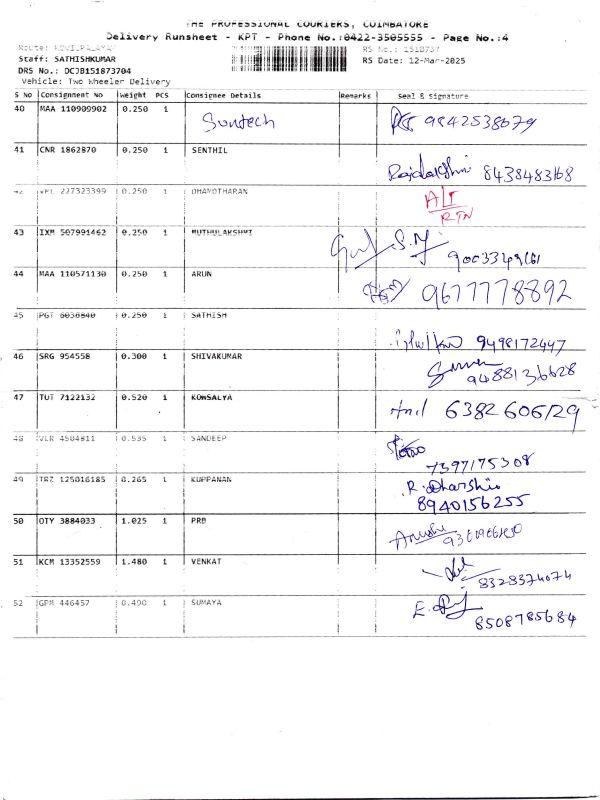 THE PROFESSIONAL COURIERS, COIMBATORE
Delivery Runsheet - KPT - Phone No.:0422-3505555 - Page No.:4
Route: KOVILPALAYAM
Staff: SATHISHKUMAR
RS Date: 12-Mar-2025
DRS No.: DCJB151873704
Vehicle: Two Wheeler Delivery
S No Consignment No Weight PCS Consignee Details Remarks Seal & Signature
40 MAA 110909902 0.250 1 Suntech 9842538079
41 CNR 1862870 0.250 1 SENTHIL
Rajalakshmi 8438483168
42 227323399 0.250 1 DHAMOTHARAN
RTN
43 IXM 507991462 0.250 1 MUTHULAKSHMI
S.M.
44 MAA 110571130 0.250 1 ARUN
9677778892
45 PGT 6030840 0.250 1 SATHISH
9498172447
46 SRG 954558 0.300 1 SHIVAKUMAR
9488136628
47 TUT 7122132 0.520 1 KOWSALYA
Anil 6382606129
48 VLR 4504811 0.535 1 SANDEEP
7397175308
49 TRZ 125016185 0.265 1 KUPPANAN
R. Dharshin
8940156255
50 OTY 3884033 1.025 1 PRB
51 KCM 13352559 1.480 1 VENKAT
8328374074
52 GPM 446457 0.490 1 SUMAYA
8508785684